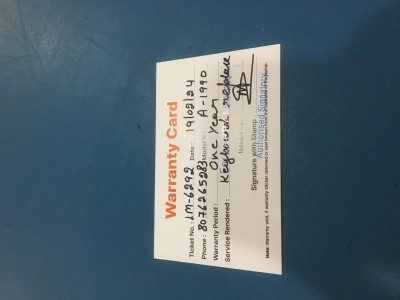 Warranty Card
Ticket No. : LM-6292 Date : 19/02/24
Phone : 8076265283 Model No. : A-1990
Warranty Period : One Year
Service Rendered : Keyboard replace
Signature with Stamp
Authorised Signatory
Note: Warranty void, if warranty sticker removed or